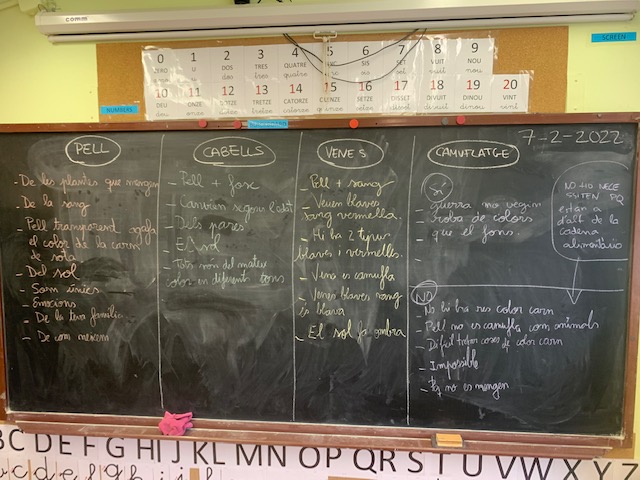 comm
SCREEN
0 1 2 3 4 5 6 7 8 9
U DOS TRES QUATRE SIS SET VUIT NOU
u dos tres quatre sis set vuit nou
10 11 12 13 14 15 16 17 18 19 20
DEU ONZE DOTZE TRETZE CATORZE QUINZE SETZE DISSET DIVUIT DINOU VINT
deu onze dotze tretze catorze quinze setze disset divuit dinou vint
NUMBERS
7-2-2022
PELL
- De les plantes que mengem
- De la sang
- Pell transparent agafa
el color de la carn
de sota
- Del sol
- Som únics
- Emocions
- De la teva família
- De com mengem
CABELLS
- Pell + fosc
- Canvien segons l'edat
- Dels pares
- El sol
- Tots són del mateix
color en diferents tons
VENES
- Pell + sang
- Venen blaves
sang vermella.
- Hi ha 2 tipus
blaves i vermelles.
- Vena es camufla
- Venes blaves sang
és blava
- El sol fa ombra
CAMUFLATGE
Sí
- guerra no vegin
- roba de colors
- que el fons.
-
NO HO NECE
SSITEN PQ
ESTAN A
DALT DE LA
CADENA
ALIMENTÀRIA
NO
- No hi ha res color carn
- Pell no es camufla com animals
- Difícil trobar coses de color carn
- Impossible
- no es mengen
BC D E F G H I J K L M N O P Q R S T U V W X Y Z